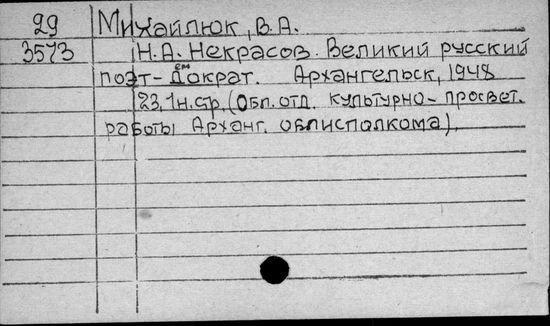 29 Михайлюк, В.А.
3573 Н.А. Некрасов. Великий русский
поэт-демократ. Архангельск, 1948
23, 1 н. стр. (Обл. отд. культурно-просвет.
работы Арханг. облисполкома).